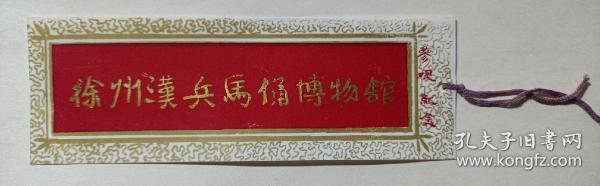 徐州漢兵馬俑博物館
参观紀念
孔夫子旧书网
www.kongfz.com